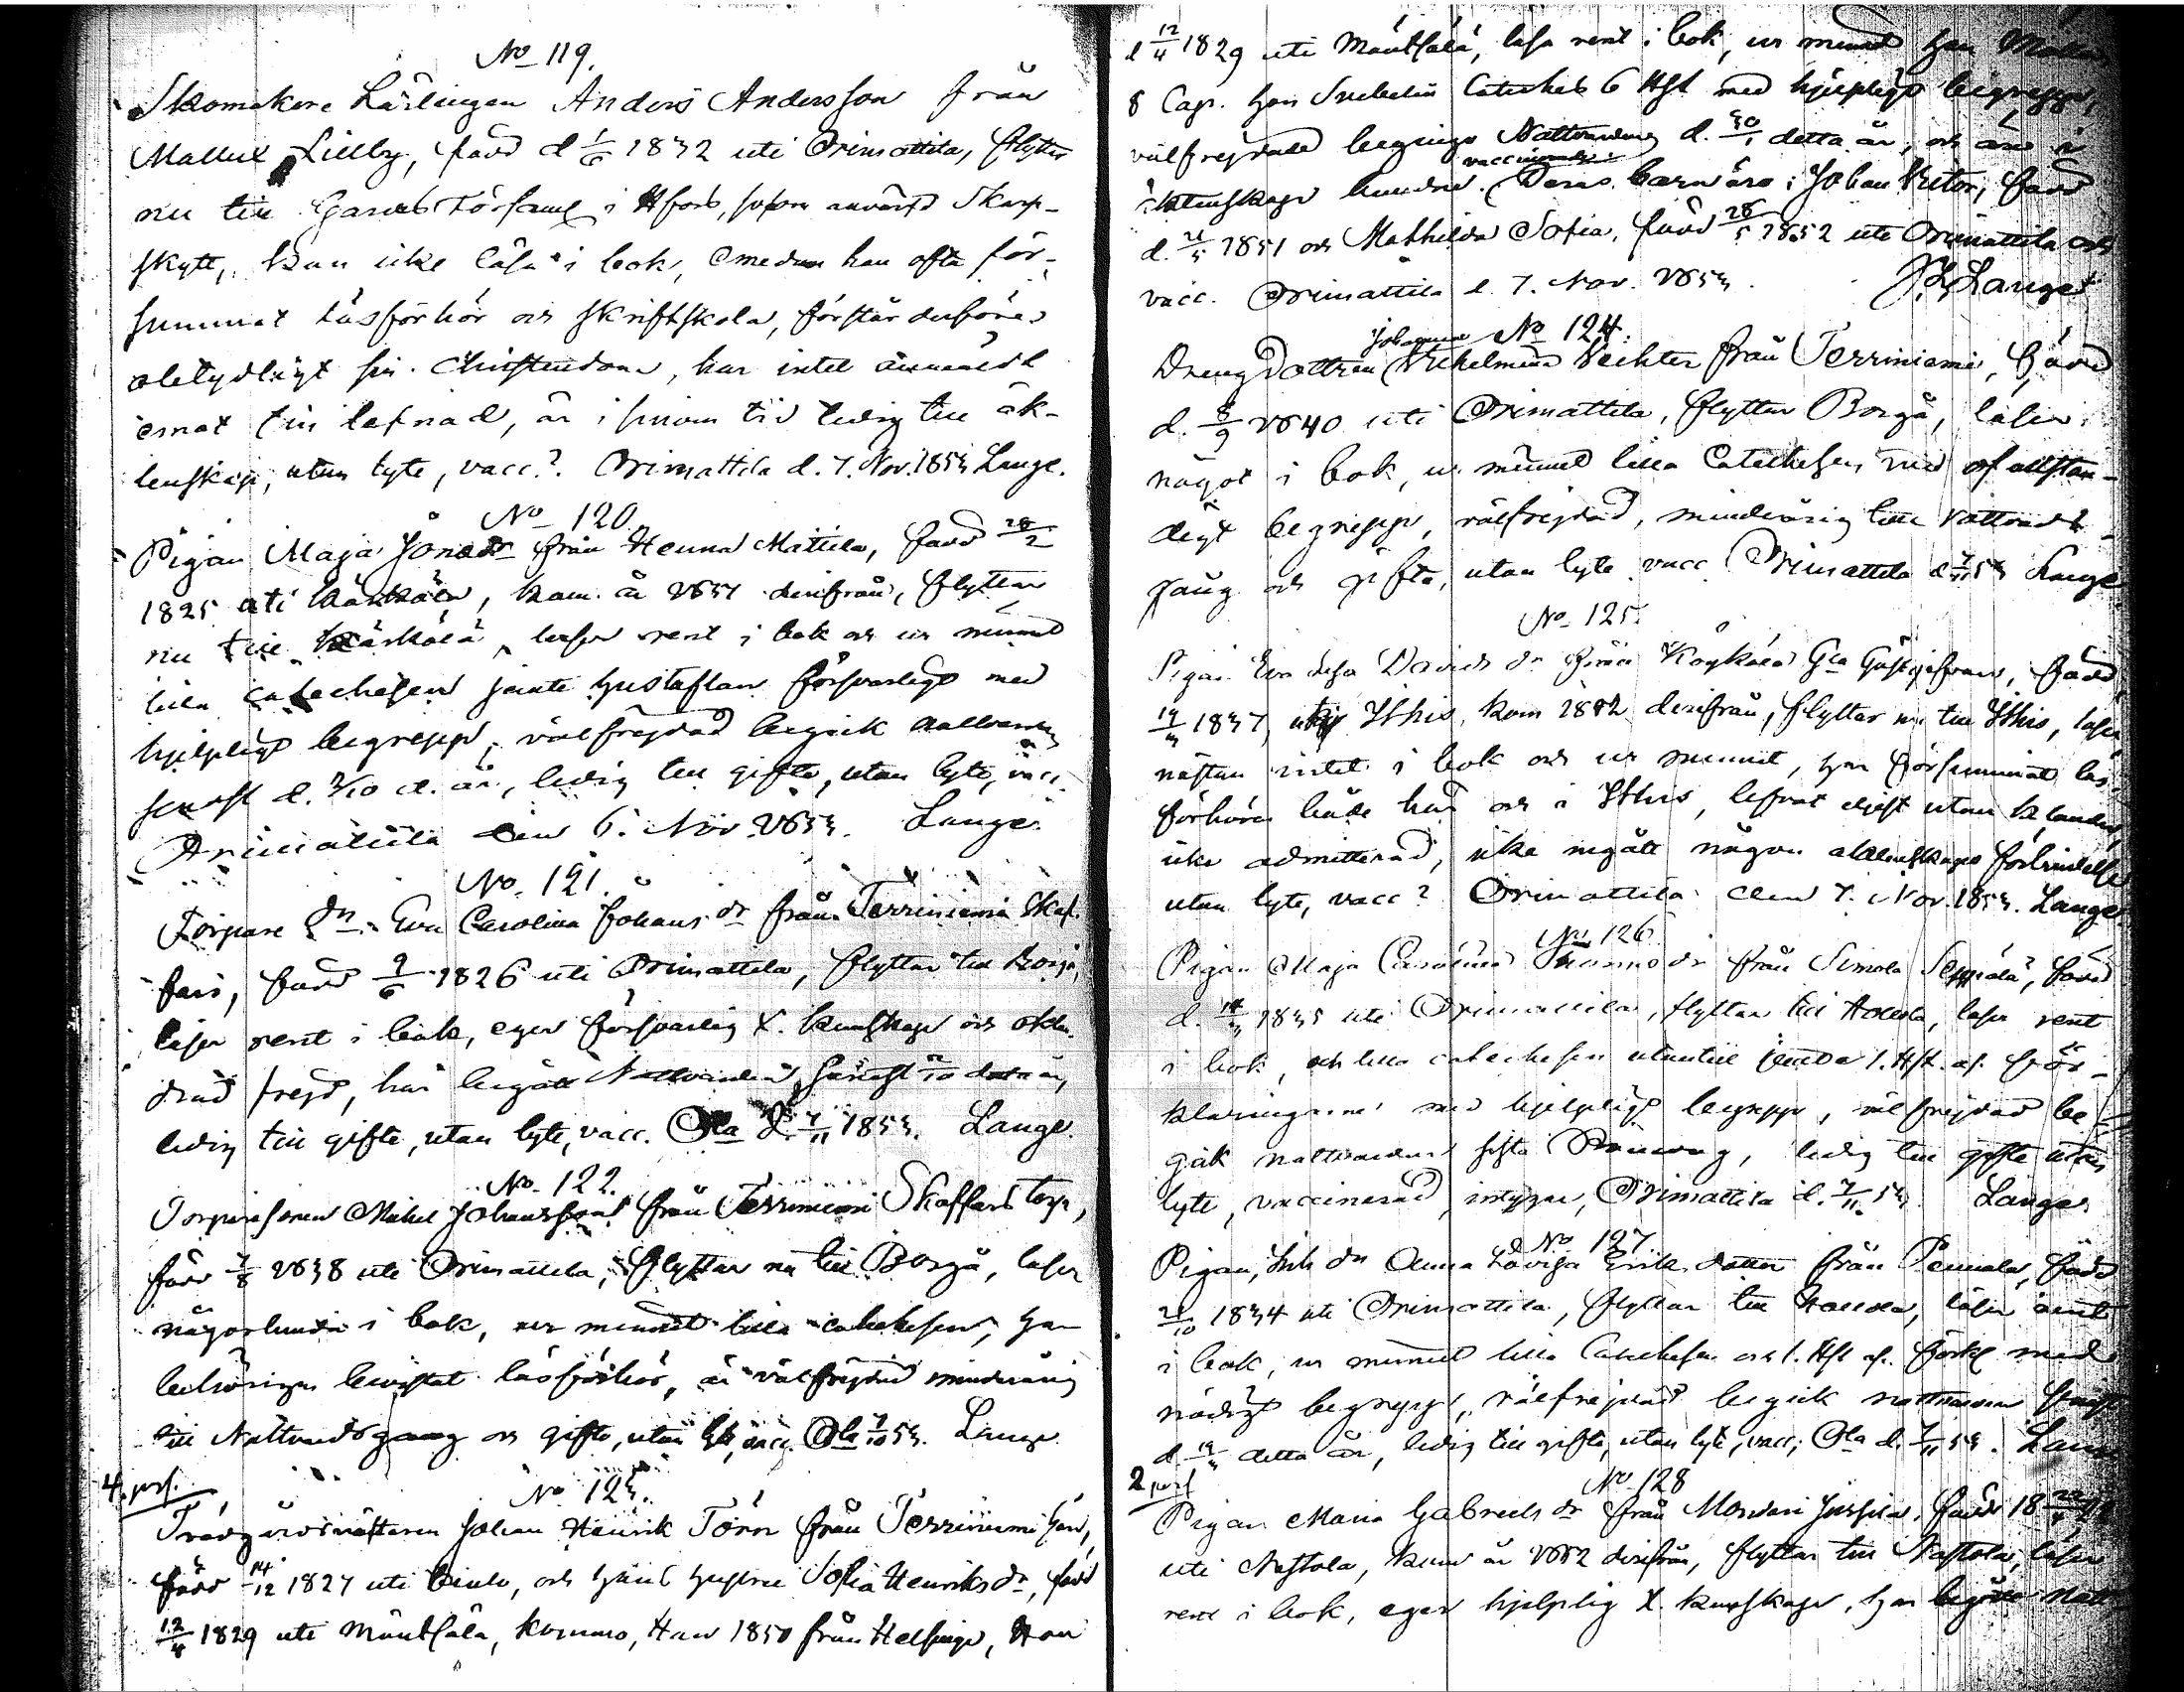 No 119.
Skomakare Lärlingen Anders Andersson från
Mallux Lillby, född d 1/6 1832 uti Orimattila, flyttar
nu till Gardes Förstand i Hfors, såsom anvärfd Skarp-
skytt, kan icke läsa i bok, emedan han ofta för-
summat läsförhör och skriftskola, förstår derföre
obetydligt sin Christendom, har intet anmärkt
emot sin lefnad, är i sinom tid ledig till äk-
tenskap, utan lyte, vacc?. Orimattila d. 7. Nov. 1853 Lange.
No 120.
Pigan Maja Jonasdr från Henna Mattila, född 28/2
1825 uti Kärkölä, kom år 1851 derifrån, flyttar
nu till Kärkölä, läser rent i bok och ur minnet
lilla catechesen jemte hustaflan försvarligt med
hjelpligt begrepp, välfrejdad begick nattvarden
senast d. 2/10 d. år, ledig till gifte, utan lyte, vacc.
Orimattila den 6. Nov. 1853. Lange.
No 121.
Torpare dr Eva Carolina Johans dr från Terriniemi Skaf-
fars, född 9/6 1826 uti Orimattila, flyttar till Borgå,
läser rent i bok, eger försvarlig X. kunskap och oklan-
drad frejd, har begått Nattvarden senast 2/10 detta år,
ledig till gifte, utan lyte, vacc. Ola d. 7/11 1853. Lange.
No 122.
Torparesonen Mikel Johansson från Terriniemi Skaffars torp,
född 7/8 1838 uti Orimattila, flyttar nu till Borgå, läser
någorlunda i bok, ur minnet lilla catechesen, har
behörigen bevistat läsförhör, är välfrejdad minderårig
till Nattvardsgang och gifte, utan lyte, vacc. Ola 7/10 53. Lange.
4. pers.
No 123.
Trädgårdsmästaren Johan Henrik Törn från Terriniemi gård,
född 14/12 1827 uti, och hans hustru Sofia Henriksdr, född
12/4 1829 uti Mäntsälä, komna, Han 1850 från Helsinge, Hon
d 12/4 1829 uti Mäntsälä, läsa rent i bok, ur minnet han
8 Cap. hon Svebelii Catechis 6 Hst med hjelpligt begrepp,
välfrejdade begingo Nattvarden d. 30/1 detta år, och äro i
äktenskap hindrade. vaccinerade Deras barn äro: Johan Victor, född
d. 21/5 1851 och Mathilda Sofia, född 28/5 1852 uti Orimattila och
vacc. Orimattila d. 7. Nov. 1853. Lange
No 124.
Drengdottren Johanna Vilhelmina Vechter från Terriniemi, född
d. 8/9 1840 uti Orimattila, flyttar Borgå, läser
något i bok, ur minnet lilla Catechesen med ofullstän-
digt begrepp, välfrejdad, minderårig till nattvards-
gång och gifte, utan lyte vacc Orimattila d 7/11 53 Lange
No 125.
Pigan Eva Lisa Davids dr från Koykälä Gla Gästgifvars, född
14/3 1837, uti Ithis, kom 1852 derifrån, flyttar nu till Ithis, läser
nästan intet i bok och ur minnet, har försummat läs-
förhören både här och i Ithis, lefvat eljest utan klander,
icke admitterad, icke ingått någon äktenskaps förbindelse
utan lyte, vacc? Orimattila den 7. Nov. 1853. Lange
No 126.
Pigan Maja Carolina dr från Simola Seppälä, född
d. 14/3 1835 uti Orimattila, flyttar till Hollola, läser rent
i bok, och lilla catechesen utantill jemte 1. Hst. af för-
klaringarne med hjelpligt begrepp, välfrejdad be-
gick nattvarden sista, ledig till gifte utan
lyte, vaccinerad, intygar, Orimattila d. 7/11 53 Lange
No 127
Pigan, Inh dr Anna Lovisa Eriks dotter från Pennala, född
21/10 1834 uti Orimattila, flyttar till Hollola, läser rent
i bok, ur minnet lilla Catechesen och 1. Hst af förkl. med
nödigt begrepp, välfrejdad begick nattvarden senast
d. detta år, ledig till gifte, utan lyte, vacc; Ola d. 7/11 53. Lange
2 pers
No 128
Pigan Maria Gabriels dr från Mondari Jussila, född 18
uti Nastola, kom år 1852 derifrån, flyttar till Nastola, läser
rent i bok, eger hjelplig X. kunskap, har begått Natt-